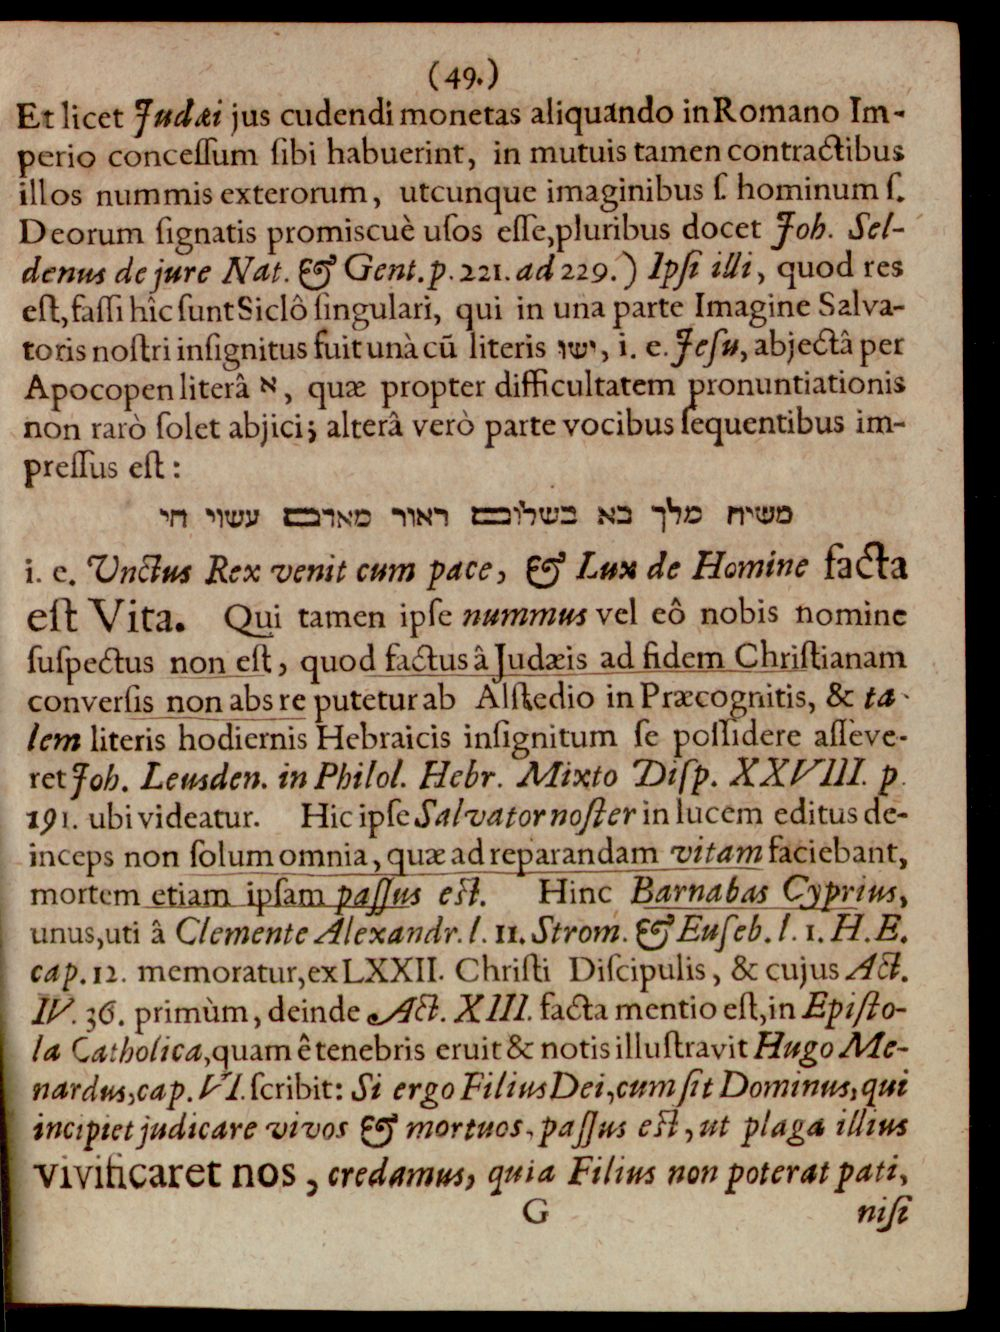 (49.)
Et licet Judæi jus cudendi monetas aliquando in Romano Im-
perio concessum sibi habuerint, in mutuis tamen contractibus
illos nummis exterorum, utcunque imaginibus s. hominum s.
Deorum signatis promiscuè usos esse, pluribus docet Joh. Sel-
denus de jure Nat. & Gent. p. 221. ad 229.) Ipsi illi, quod res
est, fassi hîc sunt Siclô singulari, qui in una parte Imagine Salva-
toris nostri insignitus fuit unà cũ literis ישו, i. e. Jesu, abjectâ per
Apocopen literâ א, quæ propter difficultatem pronuntiationis
non rarò solet abjici; alterâ verò parte vocibus sequentibus im-
pressus est:
משיח מלך בא בשלום ראור מאדם עשוי חי
i. e. Vnctus Rex venit cum pace, & Lux de Homine facta
est Vita. Qui tamen ipse nummus vel eô nobis nomine
suspectus non est, quod factus â Judæis ad fidem Christianam
conversis non abs re putetur ab Alstedio in Præcognitis, & ta-
lem literis hodiernis Hebraicis insignitum se possidere asseve-
ret Joh. Leusden. in Philol. Hebr. Mixto Disp. XXVIII. p.
191. ubi videatur. Hic ipse Salvator noster in lucem editus de-
inceps non solum omnia, quæ ad reparandam vitam faciebant,
mortem etiam ipsam passus est. Hinc Barnabas Cyprius,
unus, uti â Clemente Alexandr. l. 11. Strom. & Euseb. l. 1. H. E.
cap. 12. memoratur, ex LXXII. Christi Discipulis, & cujus Act.
IV. 36. primùm, deinde Act. XIII. facta mentio est, in Episto-
la Catholica, quam ê tenebris eruit & notis illustravit Hugo Me-
nardus, cap. VI. scribit: Si ergo Filius Dei, cum sit Dominus, qui
incipiet judicare vivos & mortuos, passus est, ut plaga illius
vivificaret nos, credamus, quia Filius non poterat pati,
G nisi